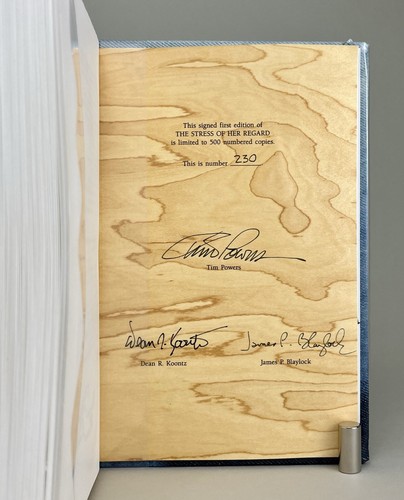 This signed first edition of
THE STRESS OF HER REGARD
is limited to 500 numbered copies.
This is number 230
Tim Powers
Tim Powers
Dean R. Koontz James P. Blaylock
Dean R. Koontz James P. Blaylock